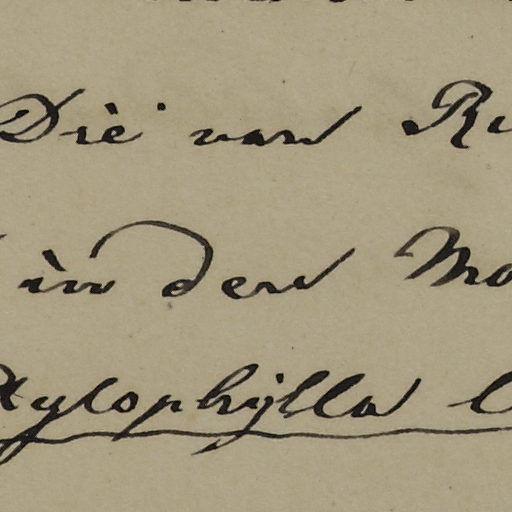 Die van Ru
in den Mo
Xylophylla l